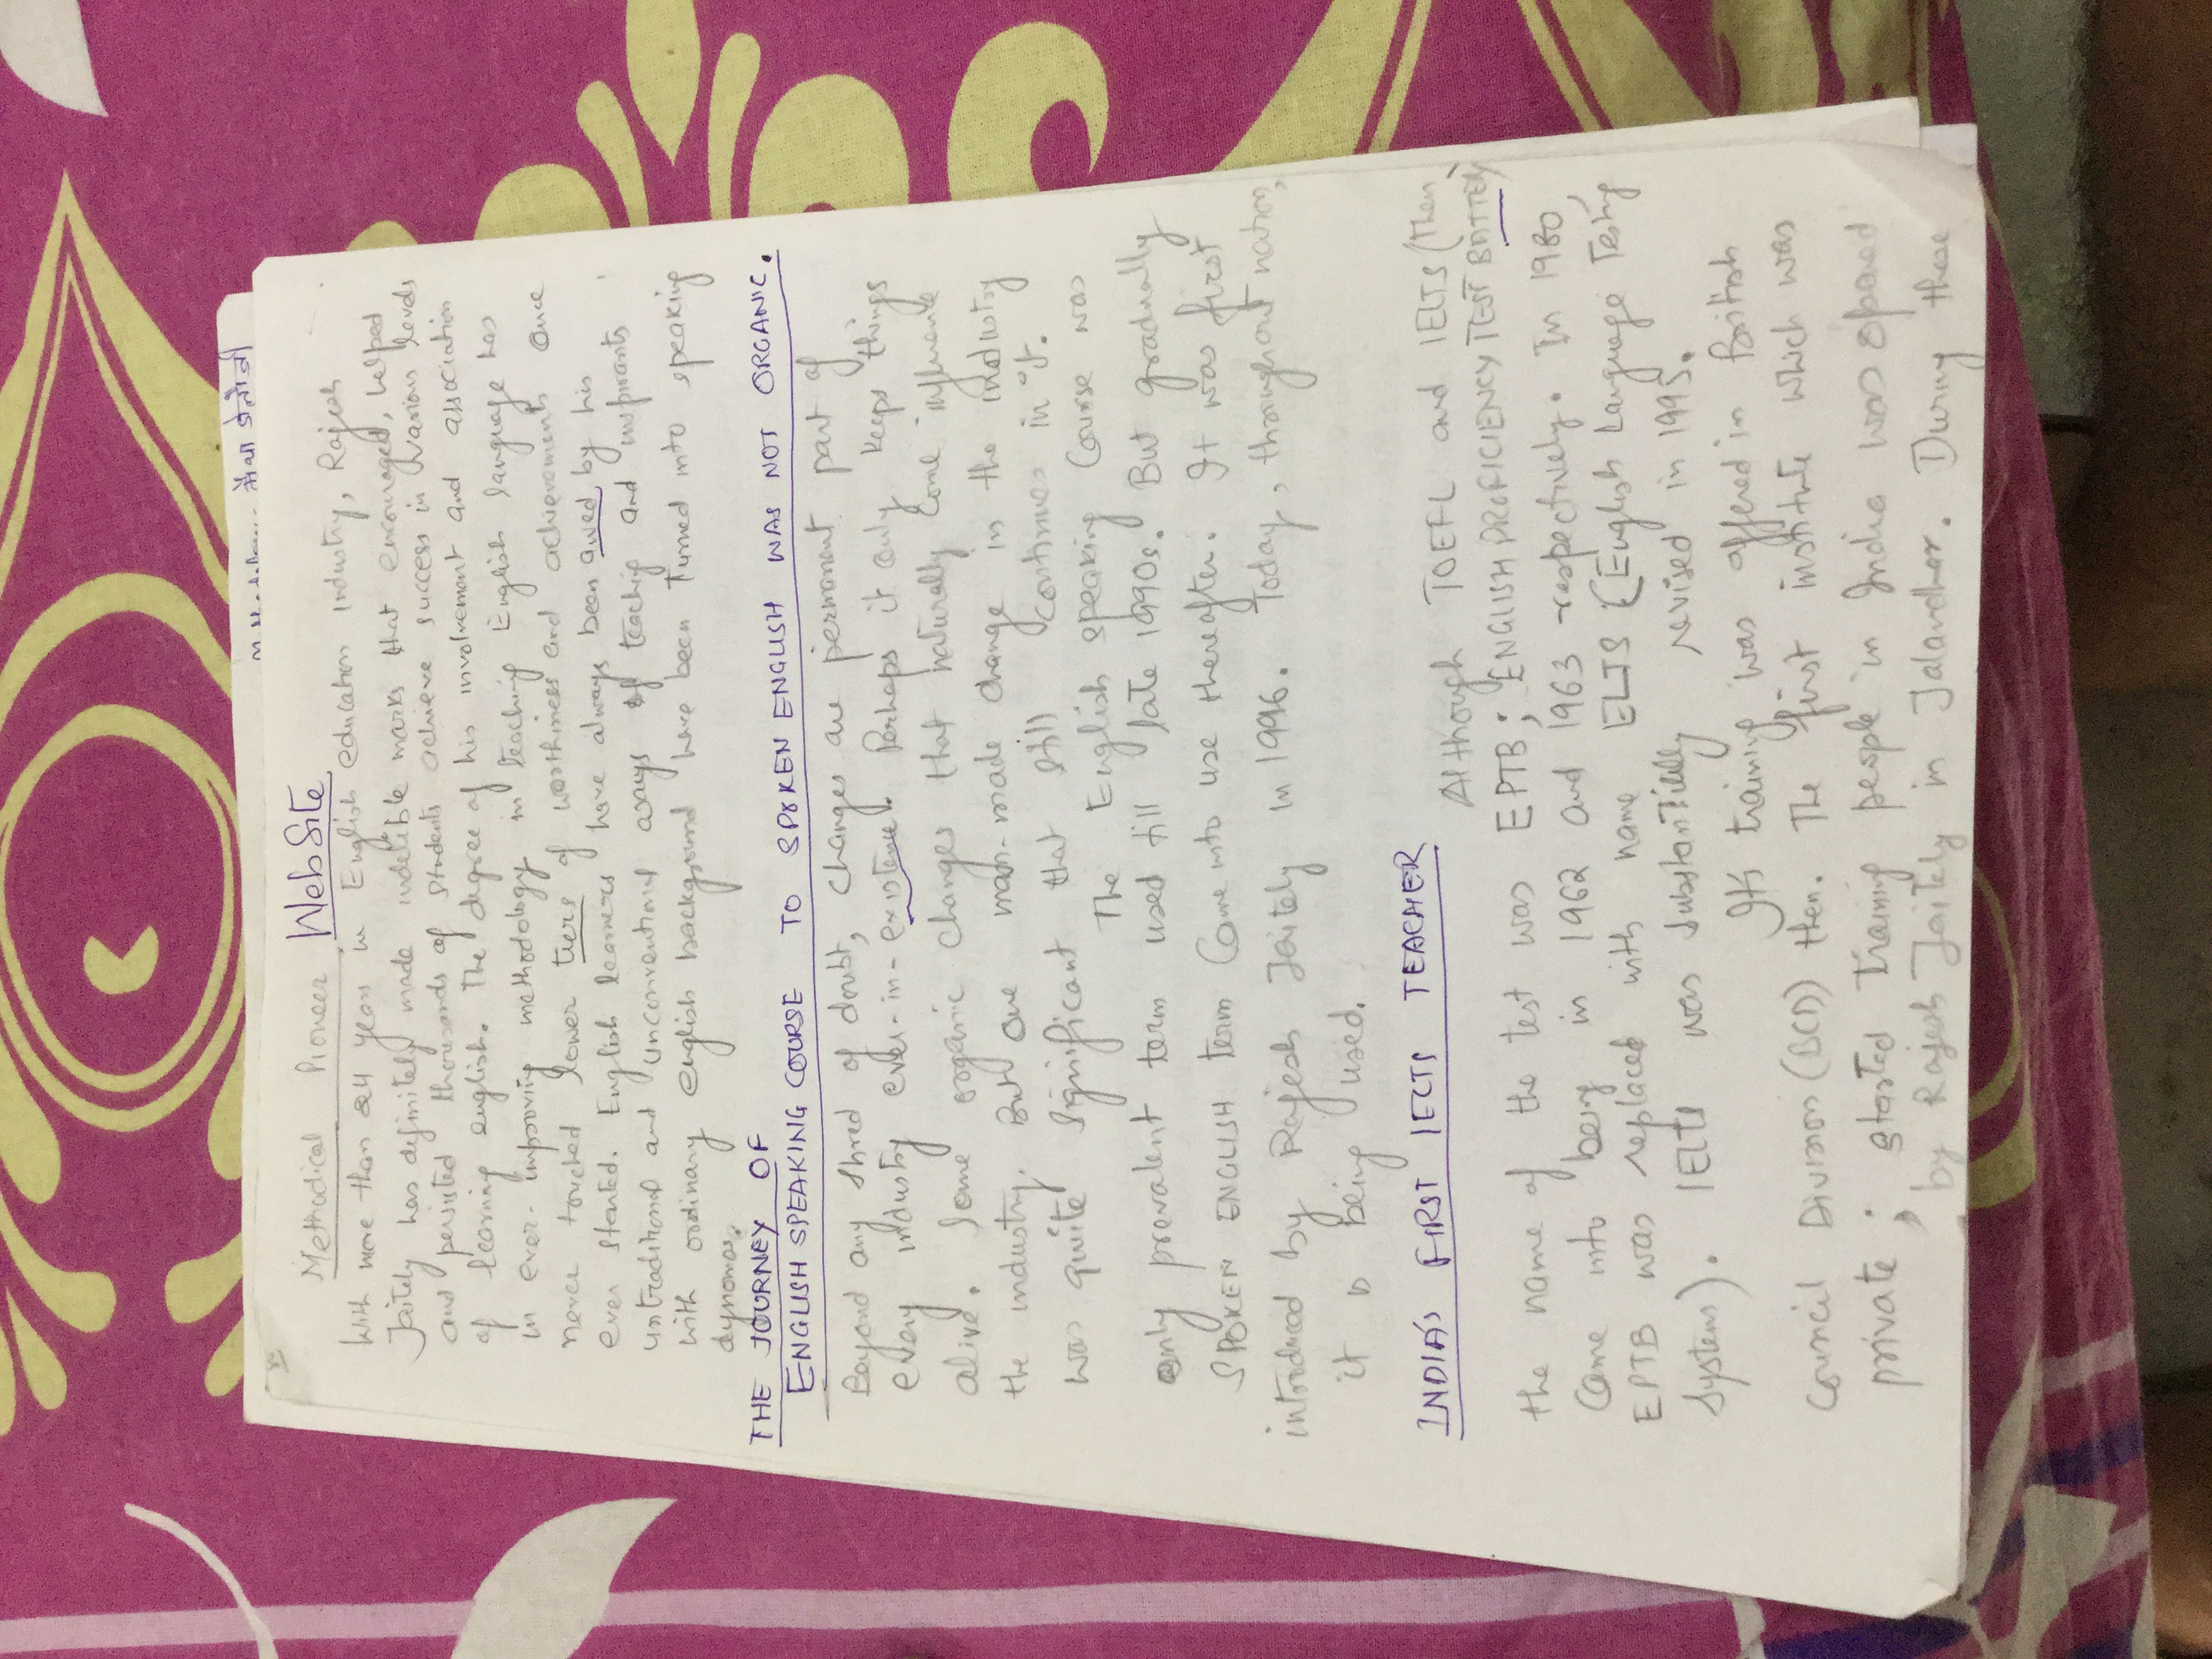 Methodology - मैथाडोलोजी
Methodical Pioneer WebSite
With more than 24 years in English education industry, Rajesh
Jaitely has definitely made indelible marks that encouraged, helped
and persisted thousands of students achieve success in various levels
of learning english. The degree of his involvement and association
in ever-improving methodology in teaching English language has
never touched lower tiers of worthiness and achievements once
ever started. English learners have always been awed by his
untraditional and unconventional ways of teaching and inspirants
with ordinary english background have been turned into speaking
dynomos.
THE JOURNEY OF
ENGLISH SPEAKING COURSE TO SPOKEN ENGLISH WAS NOT ORGANIC.
Beyond any shred of doubt, changes are permanent part of
every industry ever-in-existence. Perhaps it only keeps things
alive. Some organic changes that naturally come influence
the industry. But one man-made change in the industry
was quite significant that still continues in it.
The English speaking Course was
only prevalent term used till late 1990s. But gradually
SPOKEN ENGLISH term Came into use thereafter. It was first
introduced by Rajesh Jaitely in 1996. Today, throughout nation,
it is being used.
INDIA'S FIRST IELTS TEACHER
Although TOEFL and IELTS (then
the name of the test was EPTB; ENGLISH PROFICIENCY TEST BATTERY)
Came into being in 1962 and 1963 respectively. In 1980,
EPTB was replaced with name ELTS (English Language Testing
Systems). IELTS was substantially revised in 1995.
It's training was offered in British
Council Division (BCD) then. The first institute which was
private; started training people in India was opened
by Rajesh Jaitely in Jalandhar. During these